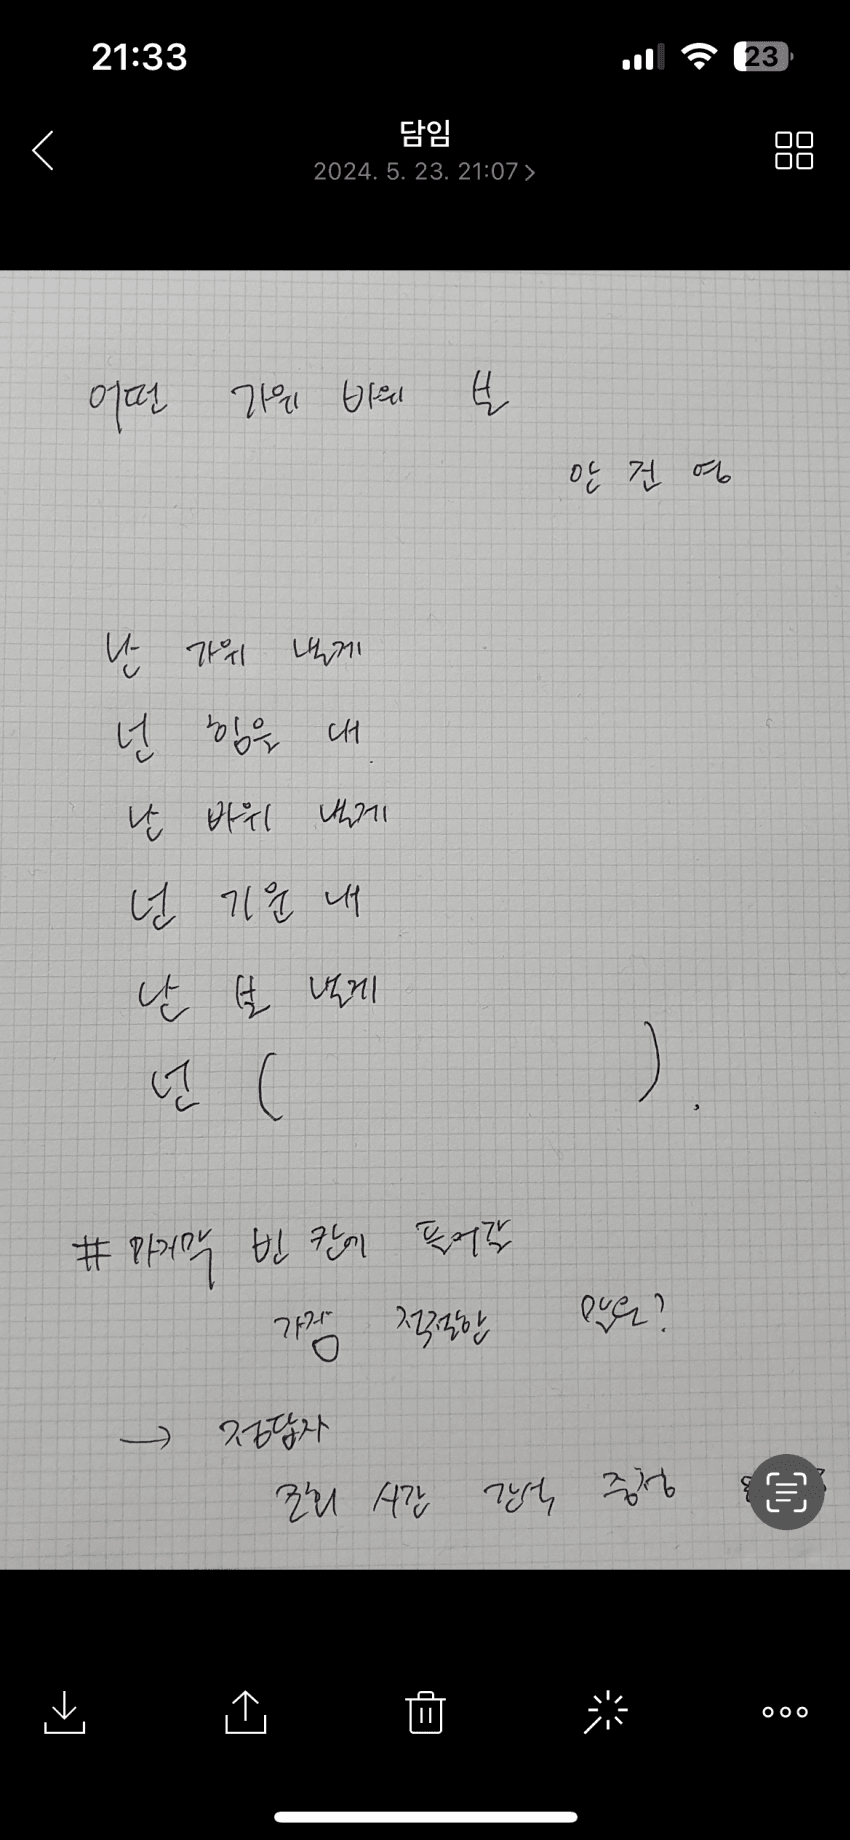 21:33
23
담임
2024. 5. 23. 21:07
어떤 가위 바위 보
안 건 영
난 가위 낼게
넌 힘을 내.
난 바위 낼게
넌 기운 내
난 보 낼게
넌 ( ).
# 마지막 빈 칸에 들어갈
가장 적절한 말은?
→ 정답자
조회 시간 간식 증정